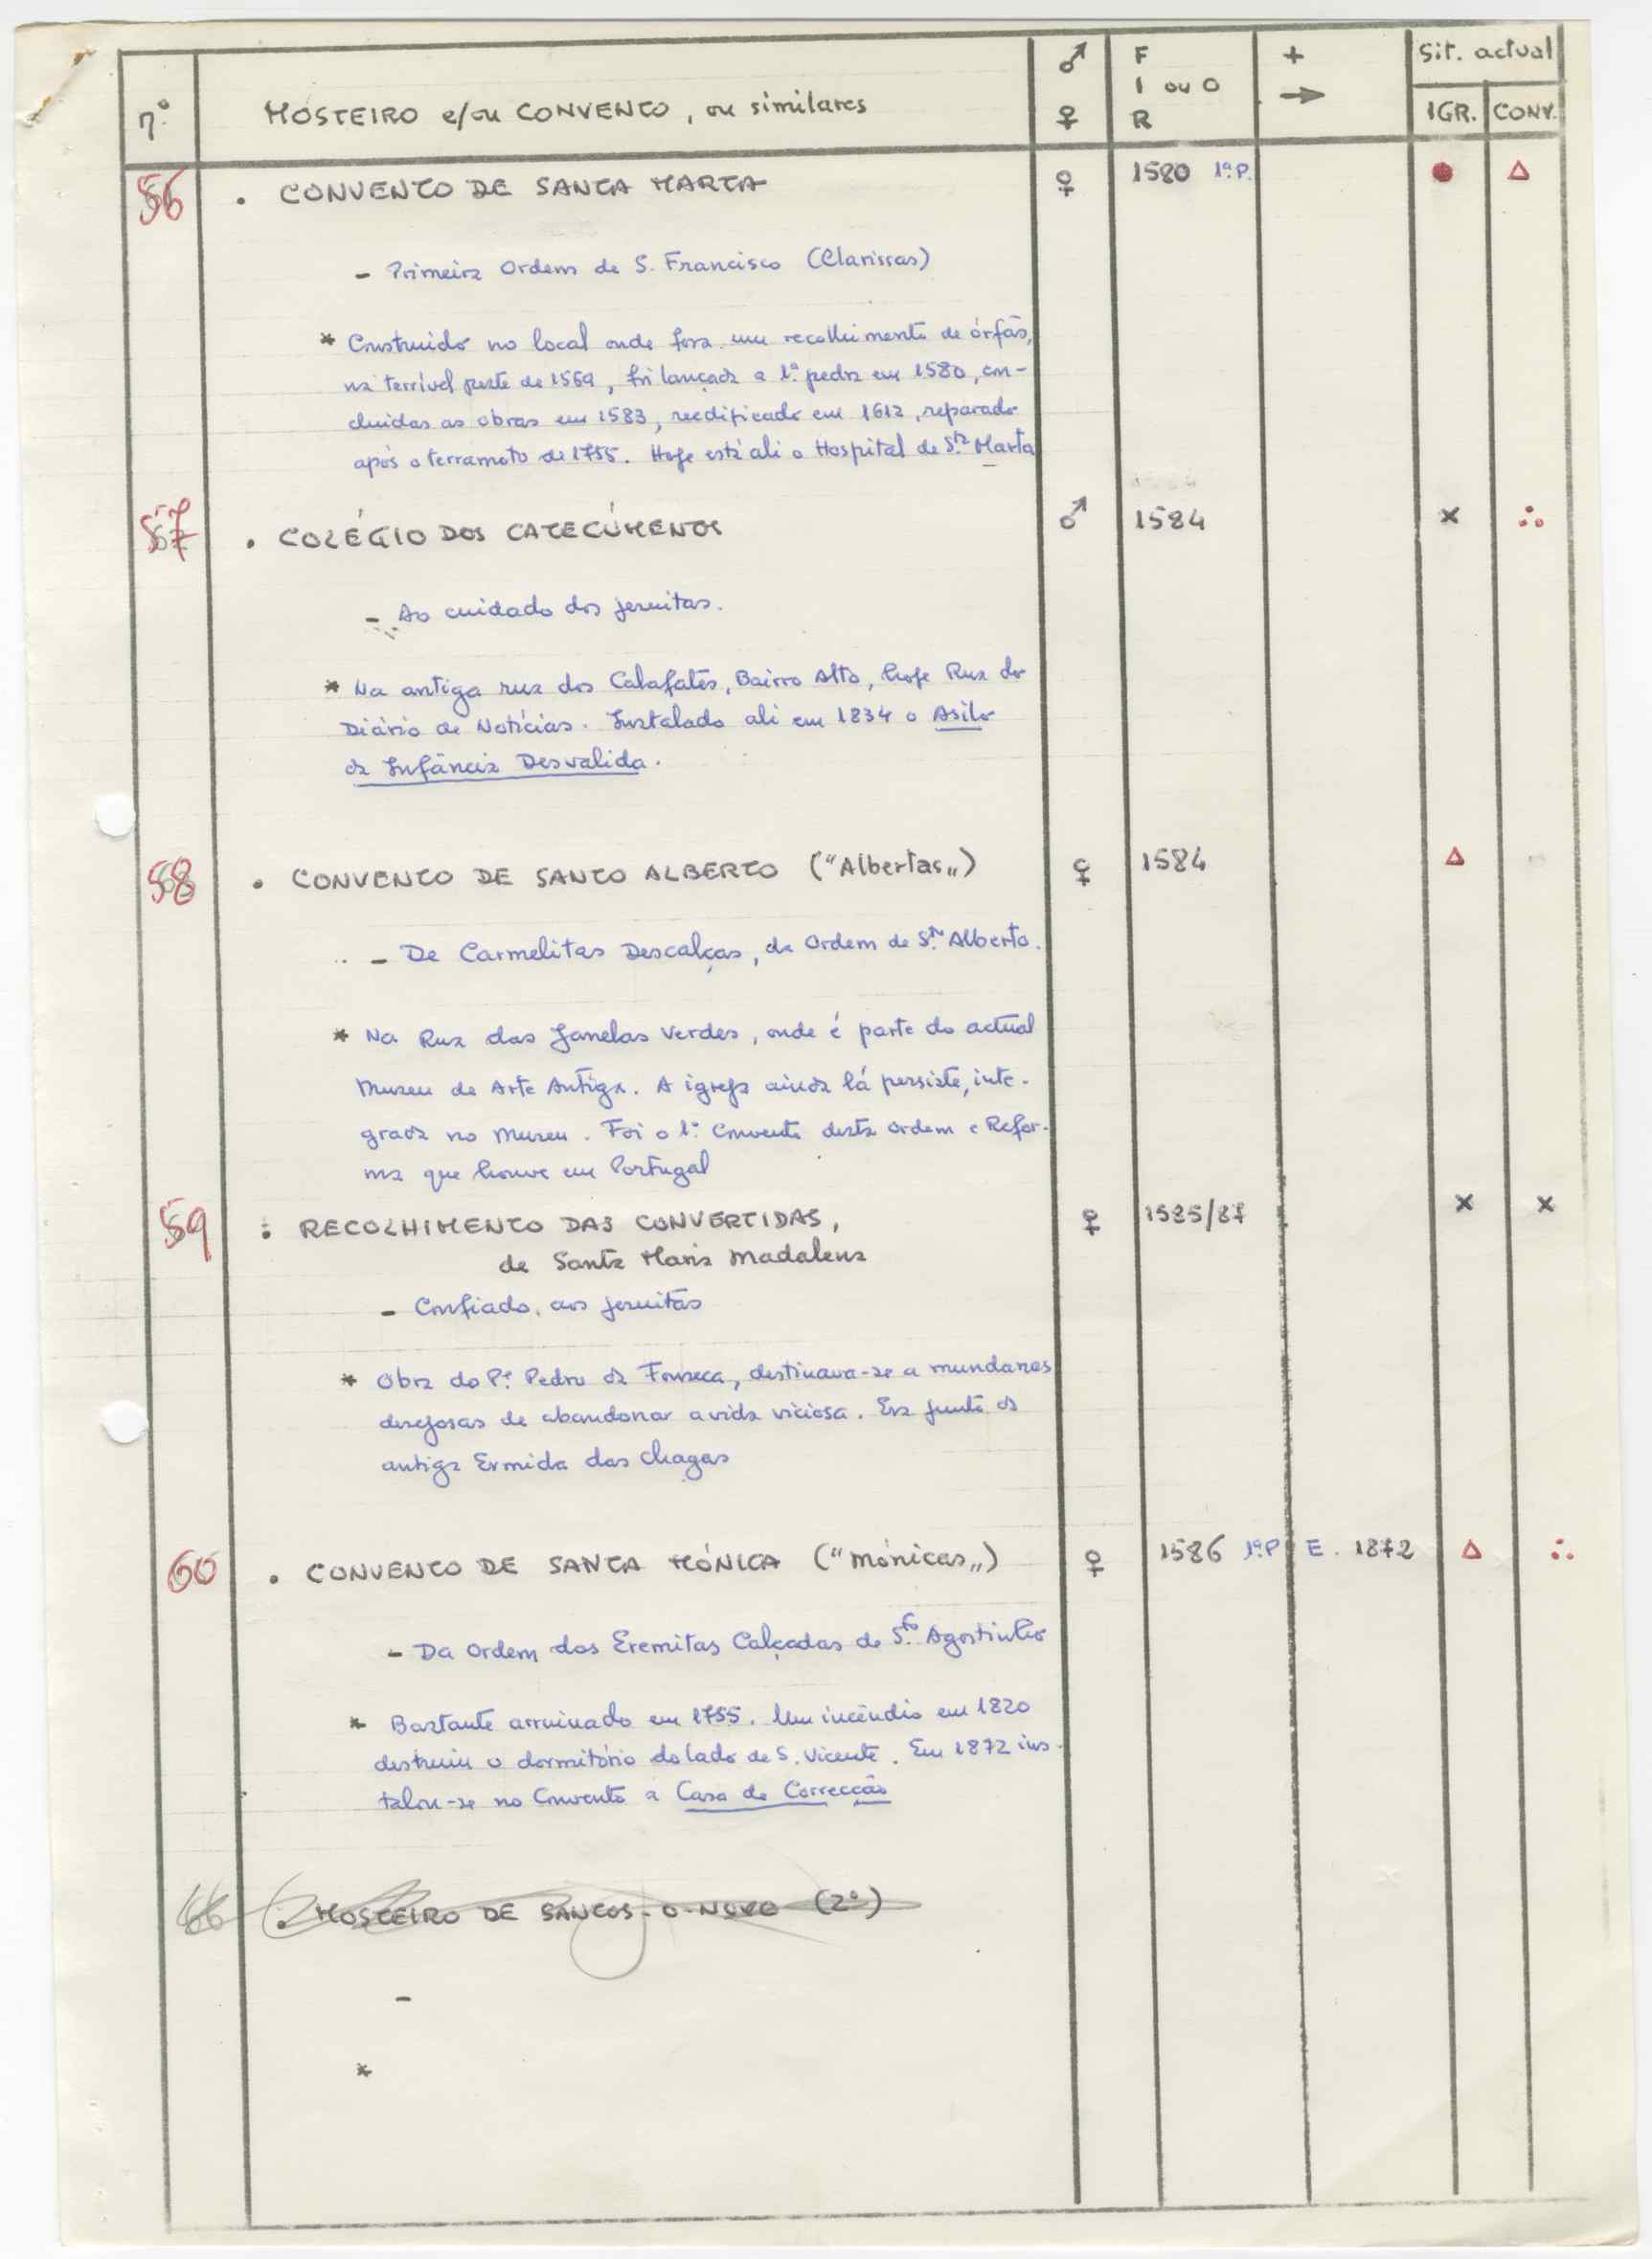 n.º
MOSTEIRO e/ou CONVENTO, ou similares
♂
♀
F
I ou O
R
+
→
Sit. actual
IGR. CONV.
56 . CONVENTO DE SANTA MARTA ♀ 1580 1ª P. ● △
- Primeira Ordem de S. Francisco (Clarissas)
* Construido no local onde fora um recolhimento de órfãs,
na terrível peste de 1569, foi lançada a 1ª pedra em 1580, con-
cluidas as obras em 1583, reedificado em 1612, reparado
após o terramoto de 1755. Hoje está ali o Hospital de Stª Marta
57 . COLÉGIO DOS CATECÚMENOS ♂ 1584 × ∴
- Ao cuidado dos jesuitas.
* Na antiga rua dos Calafates, Bairro Alto, hoje Rua do
Diário de Notícias. Instalado ali em 1834 o Asilo
da Infância Desvalida.
58 . CONVENTO DE SANTO ALBERTO ("Albertas„) ♀ 1584 △
- De Carmelitas Descalças, da Ordem de Stº Alberto.
* Na Rua das Janelas Verdes, onde é parte do actual
Museu de Arte Antiga. A igreja ainda lá persiste, inte-
grada no Museu. Foi o 1º Convento desta Ordem e Refor-
ma que houve em Portugal
59 : RECOLHIMENTO DAS CONVERTIDAS, ♀ 1585/87 × ×
de Santa Maria Madalena
- Confiado, aos jesuitas
* Obra do Pe. Pedro da Fonseca, destinava-se a mundanas
desejosas de abandonar a vida viciosa. Era junto da
antiga Ermida das Chagas
60 . CONVENTO DE SANTA MÓNICA ("Mónicas„) ♀ 1586 1ª P E. 1872 △ ∴
- Da Ordem dos Eremitas Calçadas de Stº Agostinho
* Bastante arruinado em 1755. Um incêndio em 1820
destruiu o dormitório do lado de S. Vicente. Em 1872 ins-
talou-se no Convento a Casa de Correcção
66 . MOSTEIRO DE SANTOS-O-NOVO (2º)
-
*